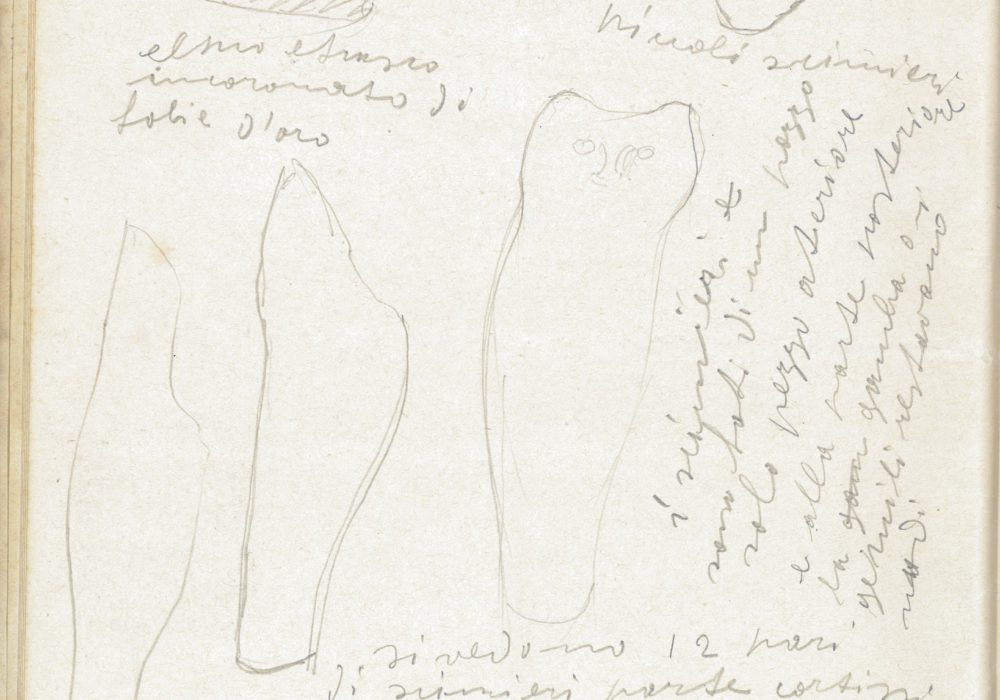 elmo etrusco
incoronato di
folie d'oro
piccoli scinnieri
i scinnieri e
sono fati di un pezzo
solo pezzo ateriore
e alla parte posteriore
la gam gamba o i
genuili restavano
nudi
si vedono 12 pari
di scinnieri parte